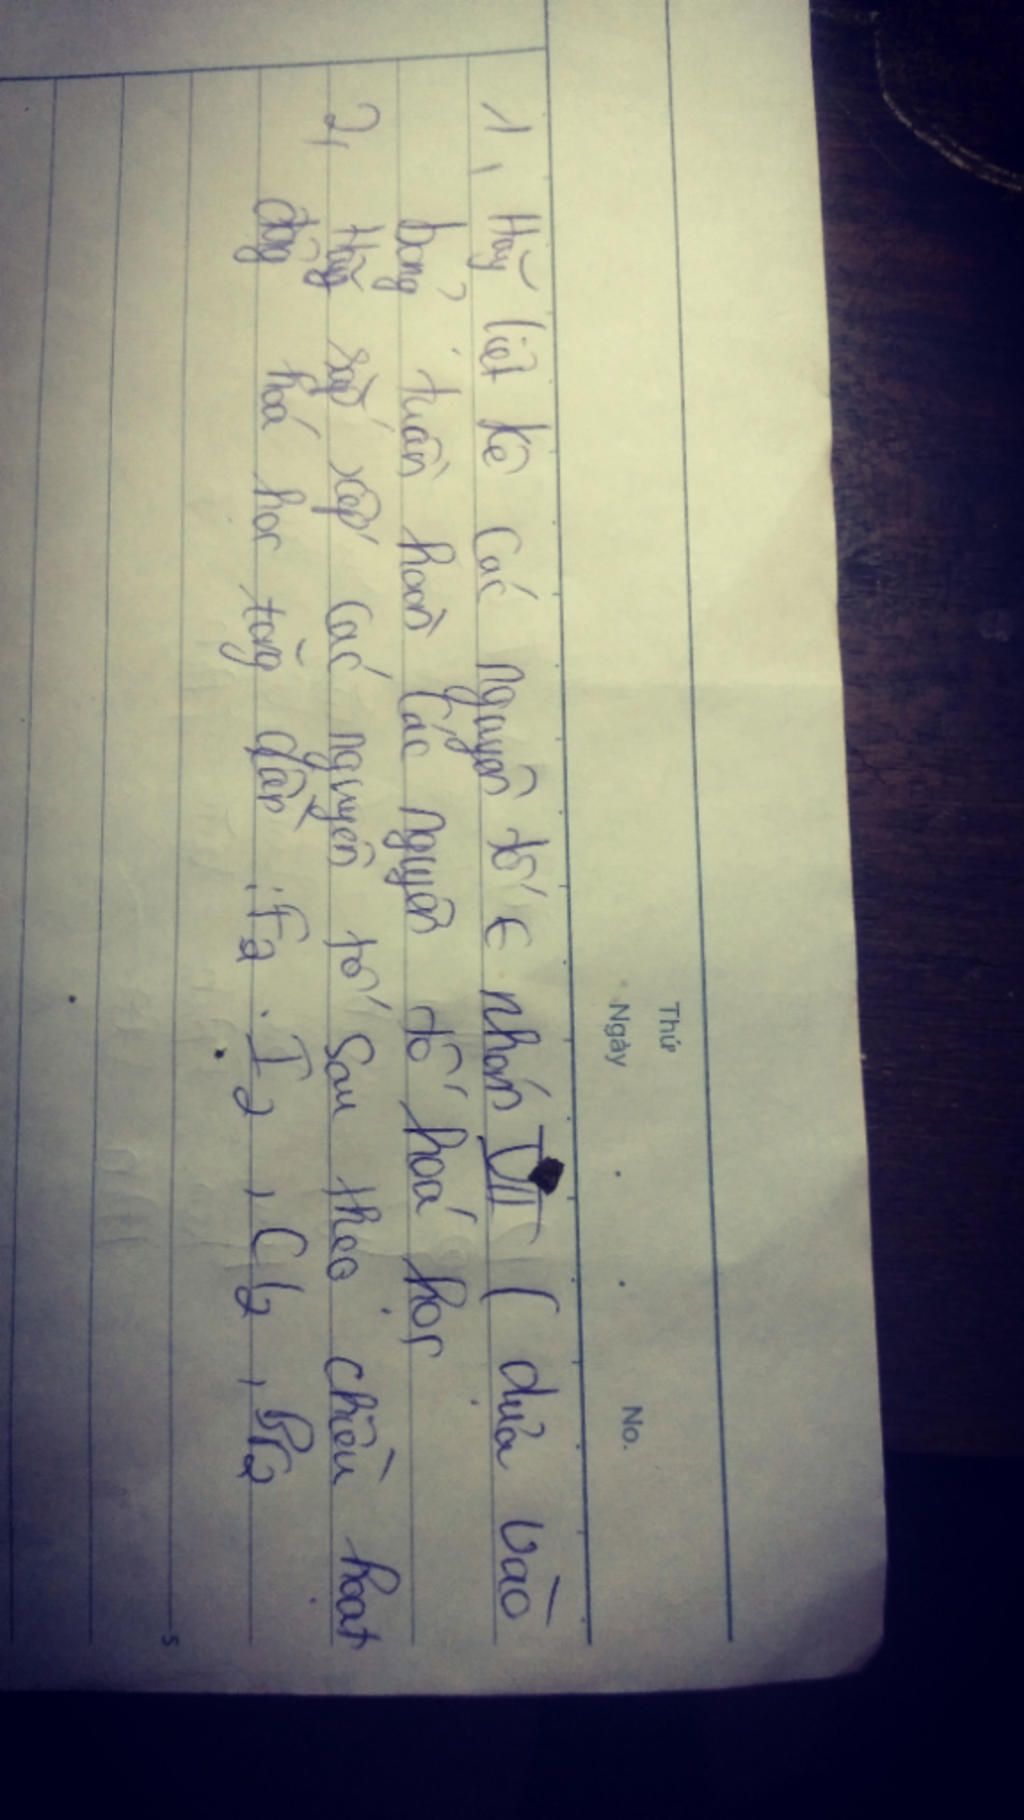 Thứ
Ngày
No.
1, Hãy liệt kê các nguyên tố ∈ nhóm VII ( dựa vào
bảng tuần hoàn các nguyên tố hoá học
2, Hãy sắp xếp các nguyên tố sau theo chiều hoạt
động hoá học tăng dần : F2 . I2 , Cl2 , Br2
5